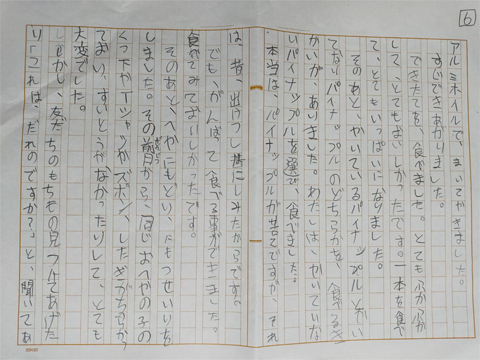 6
アルミホイルで、まいてやきました。
すじできあがりました。
できたてを、食べました。とても、
して、とてもおいしかったです。一本を食べ
て、とてもいっぱいになりました。
そのあと、かいているパイナップルとかい
てないパイナップルのどちらかを、食べるき
かいが、ありました。わたしは、かいていな
いパイナップルを選び、食べました。
本当は、パイナップルが苦手ですが、それ
は、昔、出けつし、にしみたからです。
でも、がんばって食べる事ができました。
食べてみておいしかったです。
そのあと、へやにもどり、にもつせいりを
しました。その前から、同じおへやの子の
くつ下やTシャツがズボン、したぎがちらか
てまい、すいとうがなかったりして、とても
大変でした。
しかし、友だちのもちもの見つけてあげた
り「これは、だれのですか？」と、聞いてあ